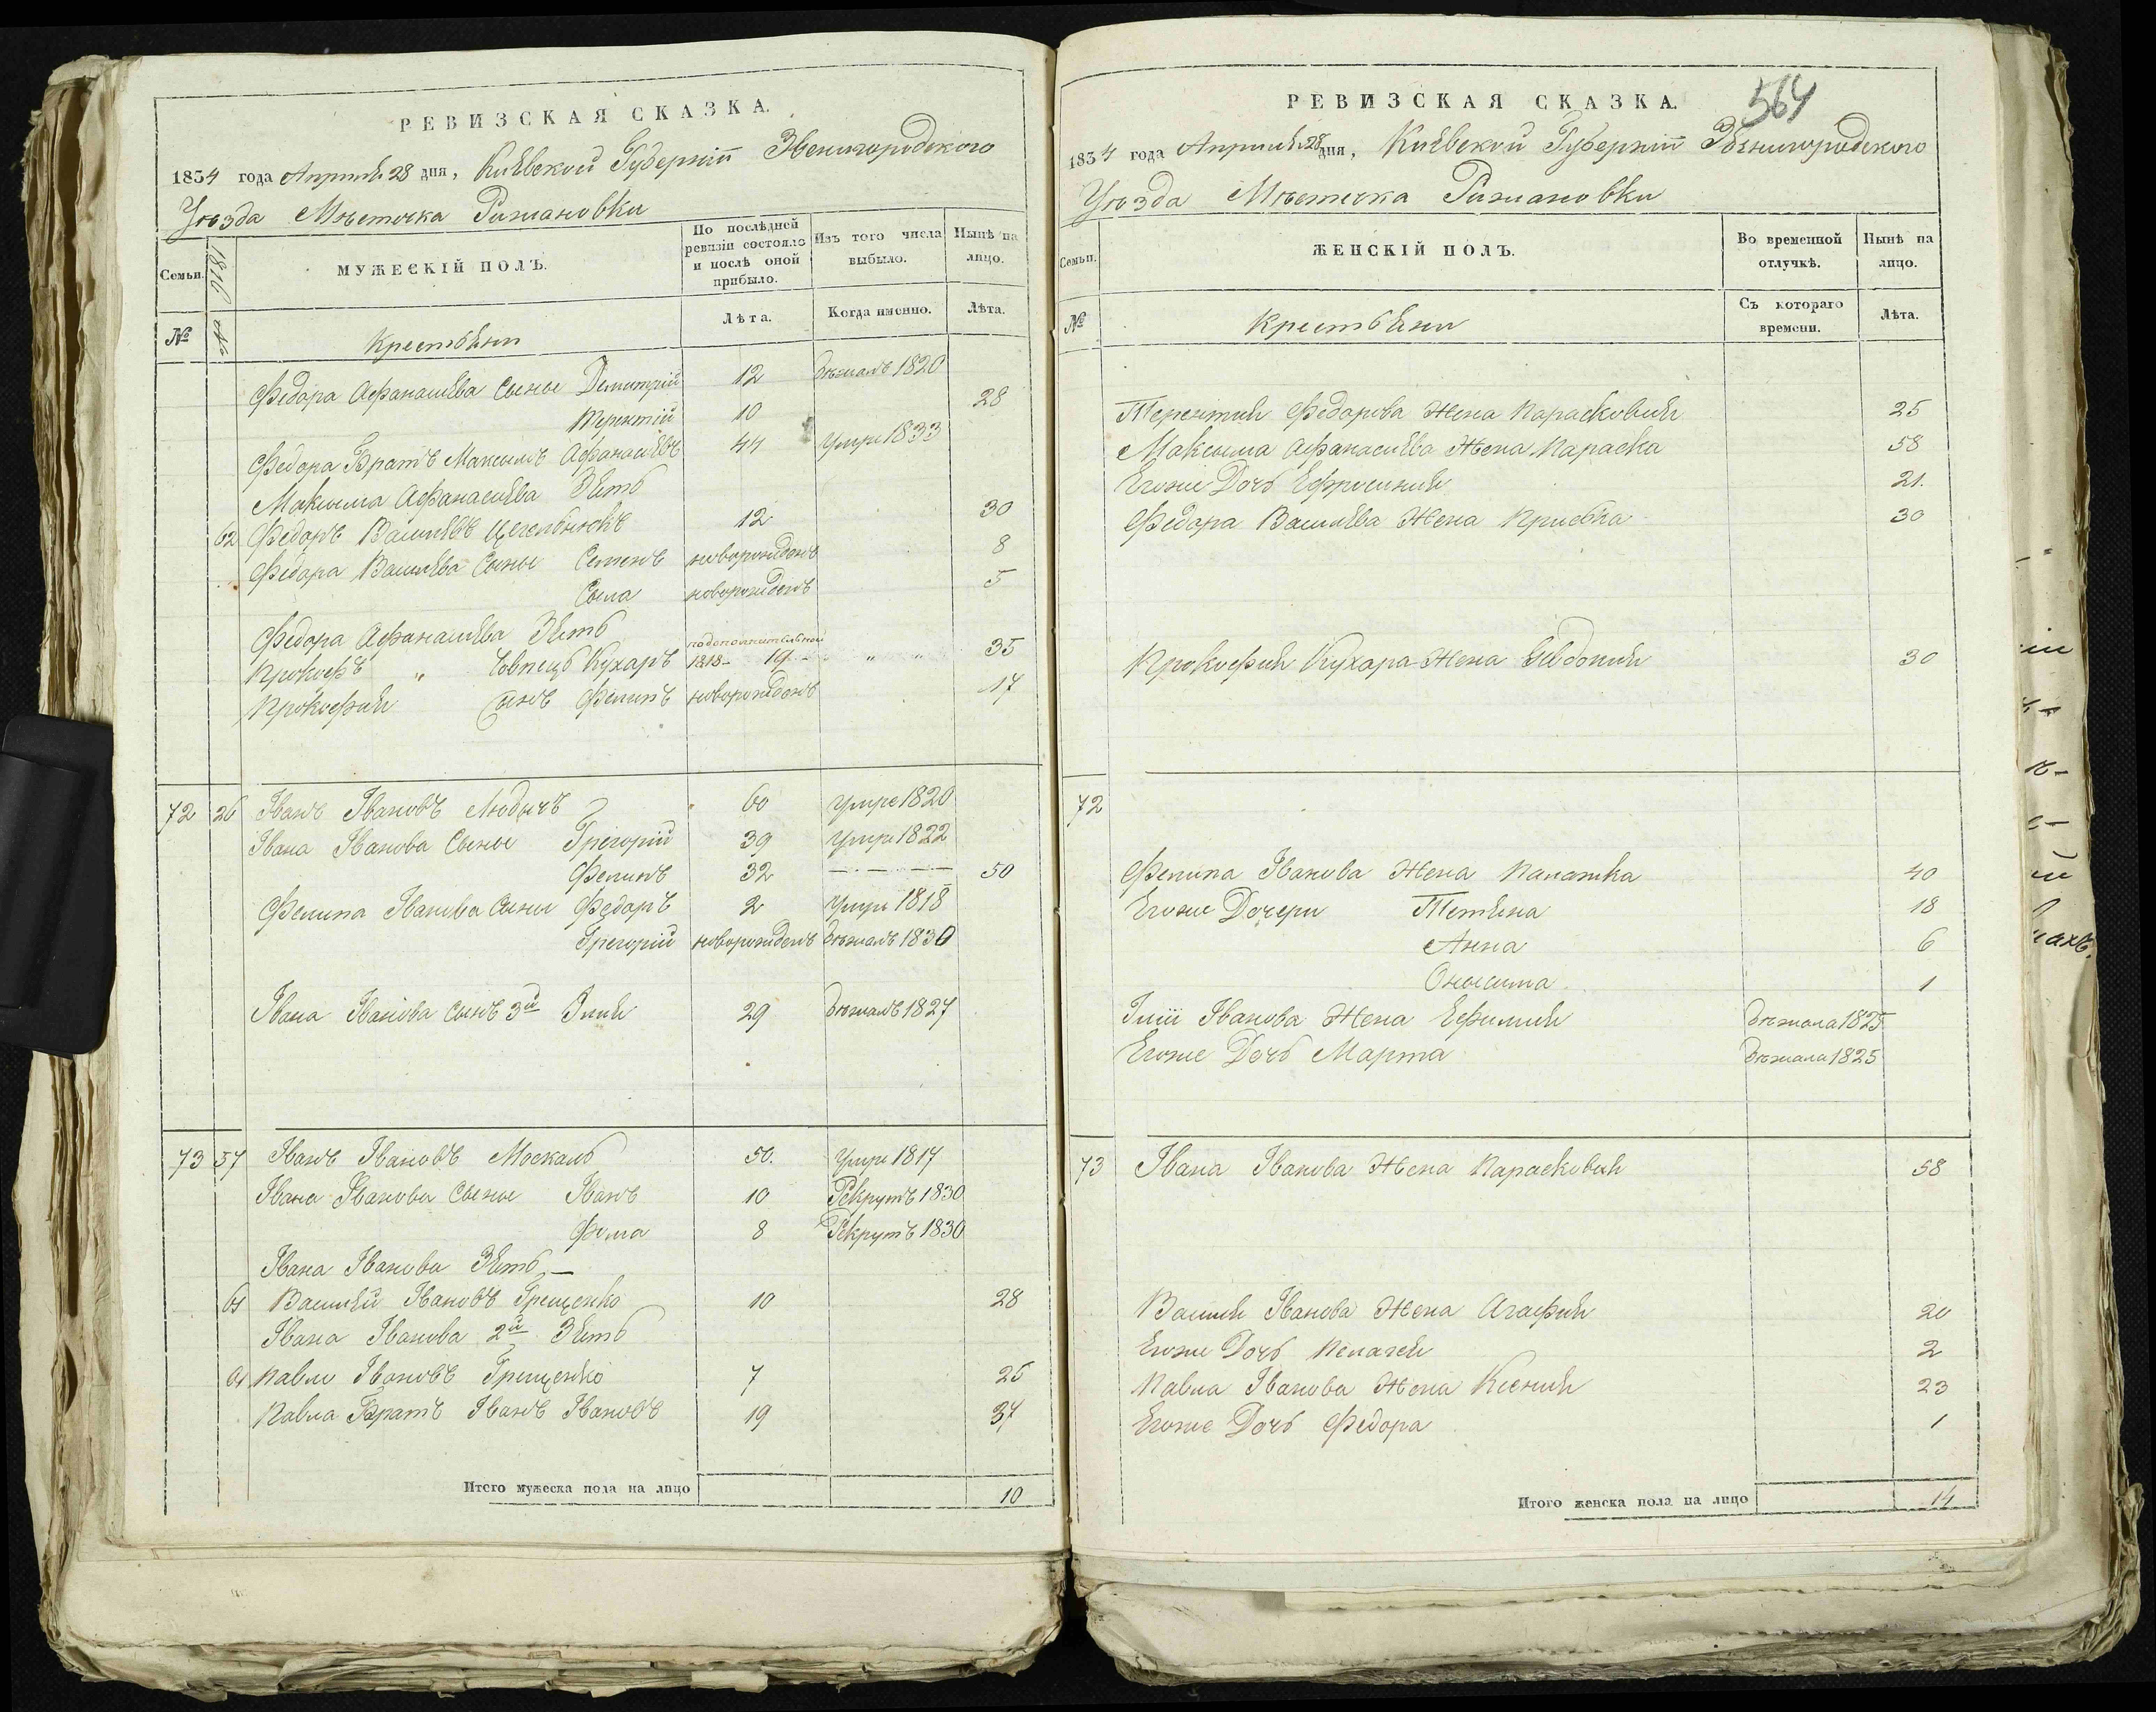 РЕВИЗСКАЯ СКАЗКА.
1834 года Апреля 28 дня, Кіевской Губерніи Звенигородского
Уѣзда Мѣстечка Рижановки
Семьи.
1816
МУЖЕСКІЙ ПОЛЪ.
По послѣдней ревизіи состояло и послѣ оной прибыло.
Изъ того числа выбыло.
Нынѣ на лицо.
№
№
Крестьяни
Лѣта.
Когда именно.
Лѣта.
Федора Афанасіева Сыны Демитрій 12 бѣжалъ 1820
Терентій 10 28
Федора Братъ Максымъ Афанасіевъ 44 Умре 1833
Максыма Афанасіева Зять
62 Федоръ Васильевъ 12 30
Федора Васильева Сыны Семенъ новорожденъ 8
Сыла новорожденъ 5
Федора Афанасіева Зять
Прокофъ " Кухаръ 1818 - 19 - " " 35
Прокофія Сынъ Филипъ новорожденъ 17
72 26 Іванъ Івановъ Людычъ 60 Умре 1820
Івана Іванова Сыны Грегорій 39 Умре 1822
Филипъ 32 — · — · — 50
Филипа Іванова Сыны Федоръ 2 Умре 1818
Грегорій новорожденъ бѣжалъ 1830
Івана Іванова Сынъ 3й Илія 29 бѣжалъ 1827
73 57 Іванъ Івановъ Москаль 50. Умре 1817
Івана Іванова Сыны Іванъ 10 Рекрутъ 1830
Фома 8 Рекрутъ 1830
Івана Іванова Зять —
61 Василій Івановъ Грещенко 10 28
Івана Іванова 2й Зять
61 Павло Івановъ Грещенко 7 25
Павла Братъ Іванъ Івановъ 19 37
Итого мужеска пола на лицо 10
564
РЕВИЗСКАЯ СКАЗКА.
1834 года Апреля 28 дня, Кіевской Губерніи Звенигородского
Уѣзда Мѣстечка Рижановки
Семьи.
ЖЕНСКІЙ ПОЛЪ.
Во временной отлучкѣ.
Нынѣ на лицо.
№
Крестьяни
Съ котораго времени.
Лѣта.
Терентія Федорова Жена Парасковія 25
Максыма Афанасіева Жена Параска 58
Егоже Дочь Ефросинія 21.
Федора Васильева Жена Приська 30
Прокофія Кухара Жена Євдокія 30
72
Филипа Іванова Жена Палажка 40
Егоже Дочери Тетяна 18
Анна 6
Онысима 1
Іліи Іванова Жена Ефимія бѣжала 1825
Егоже Дочь Марта бѣжала 1825
73 Івана Іванова Жена Парасковія 58
Василія Іванова Жена Агафія 20
Егоже Дочь Пелагея 2
Павла Іванова Жена Ксенія 23
Егоже Дочь Федора 1
Итого женска пола на лицо 14